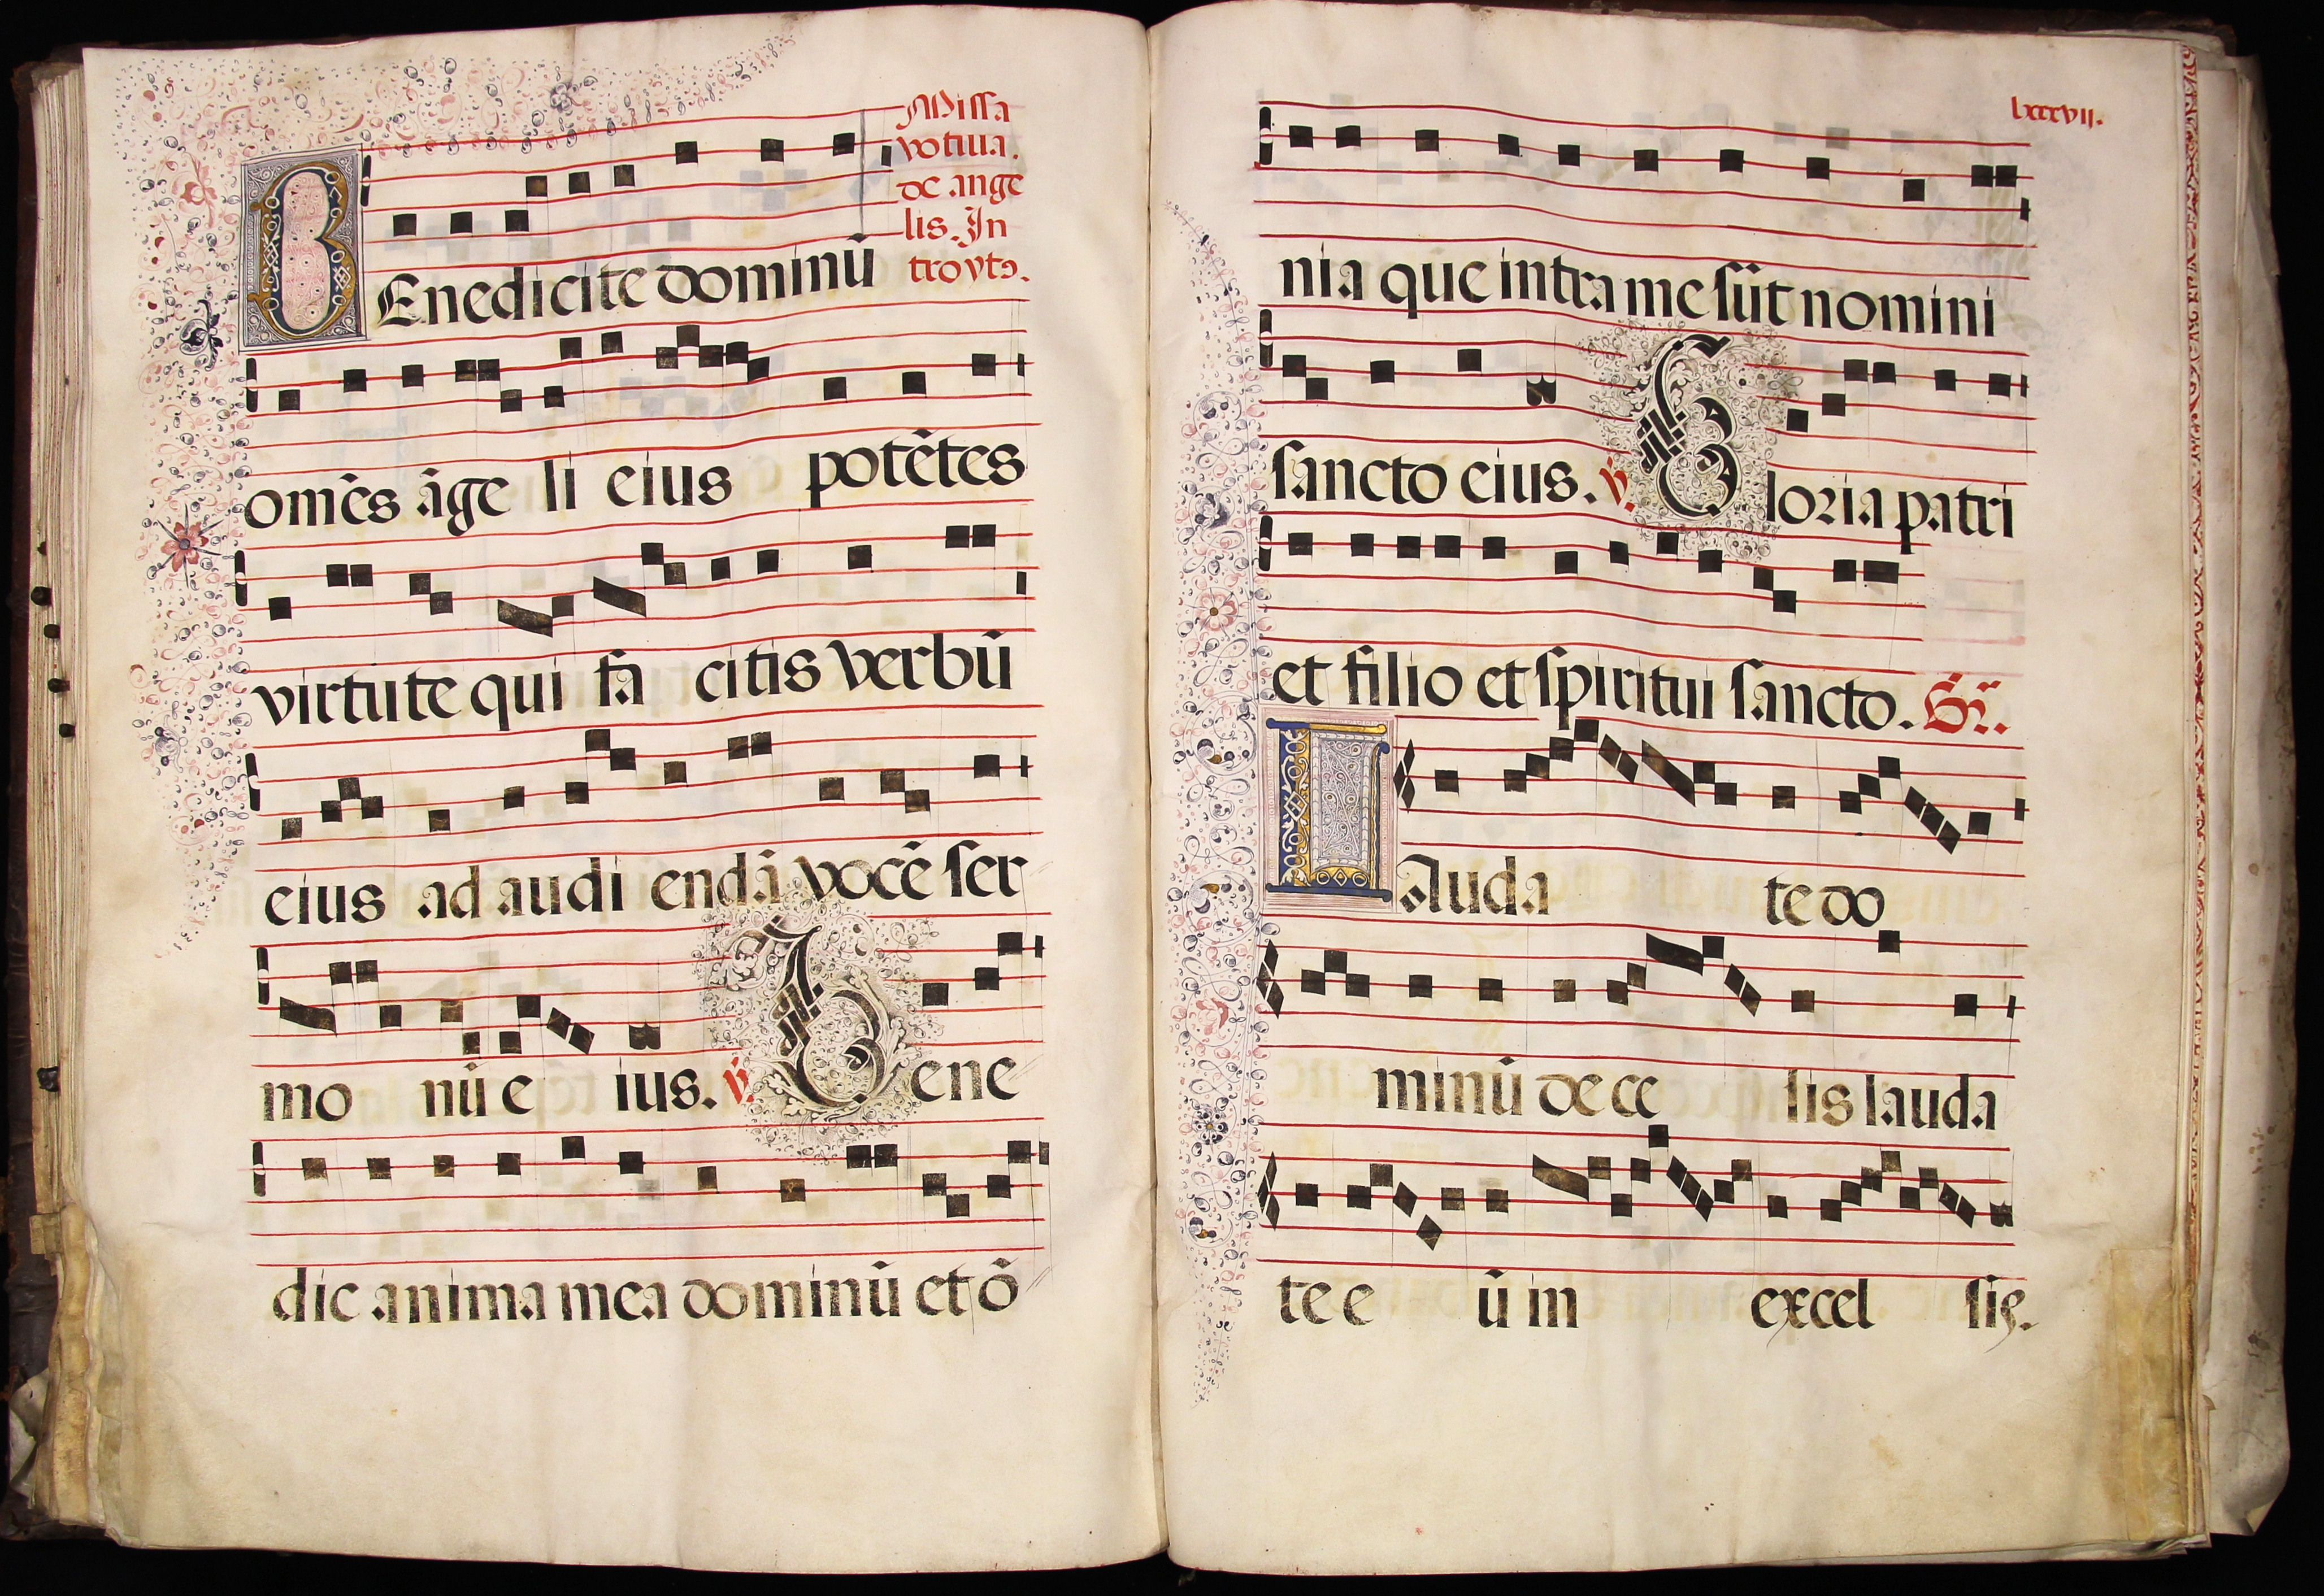 Missa
votiua.
de ange
lis. In
troytꝰ.
BEnedicite dominū
om̄es āge li eius potētes
virtute qui fa citis verbū
eius ad audi endā vocē ser
mo nū e ius. ℣. Bene
dic anima mea dominū et ō
lxxxvii.
nia que intra me sūt nomini
sancto eius. ℣. Gloria patri
et filio et spiritui sancto. Gr̄.
LAuda te do
minū de ce lis lauda
te e ū in excel sis.